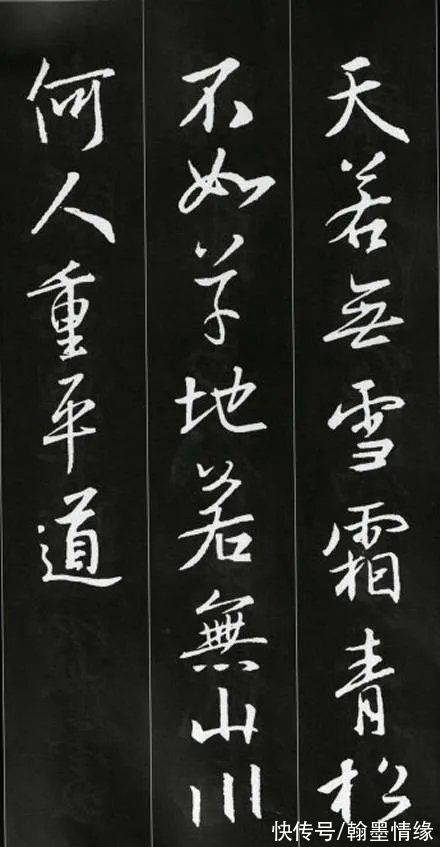 天若無雪霜青松
不如草地若無山川
何人重平道
快传号/翰墨情缘